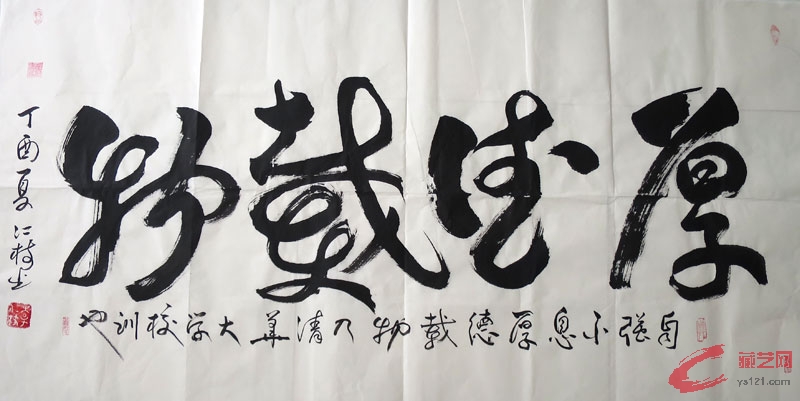 厚德載物
自强不息厚德載物乃清华大学校训也
丁酉夏仁特书
藏艺网
ys121.com